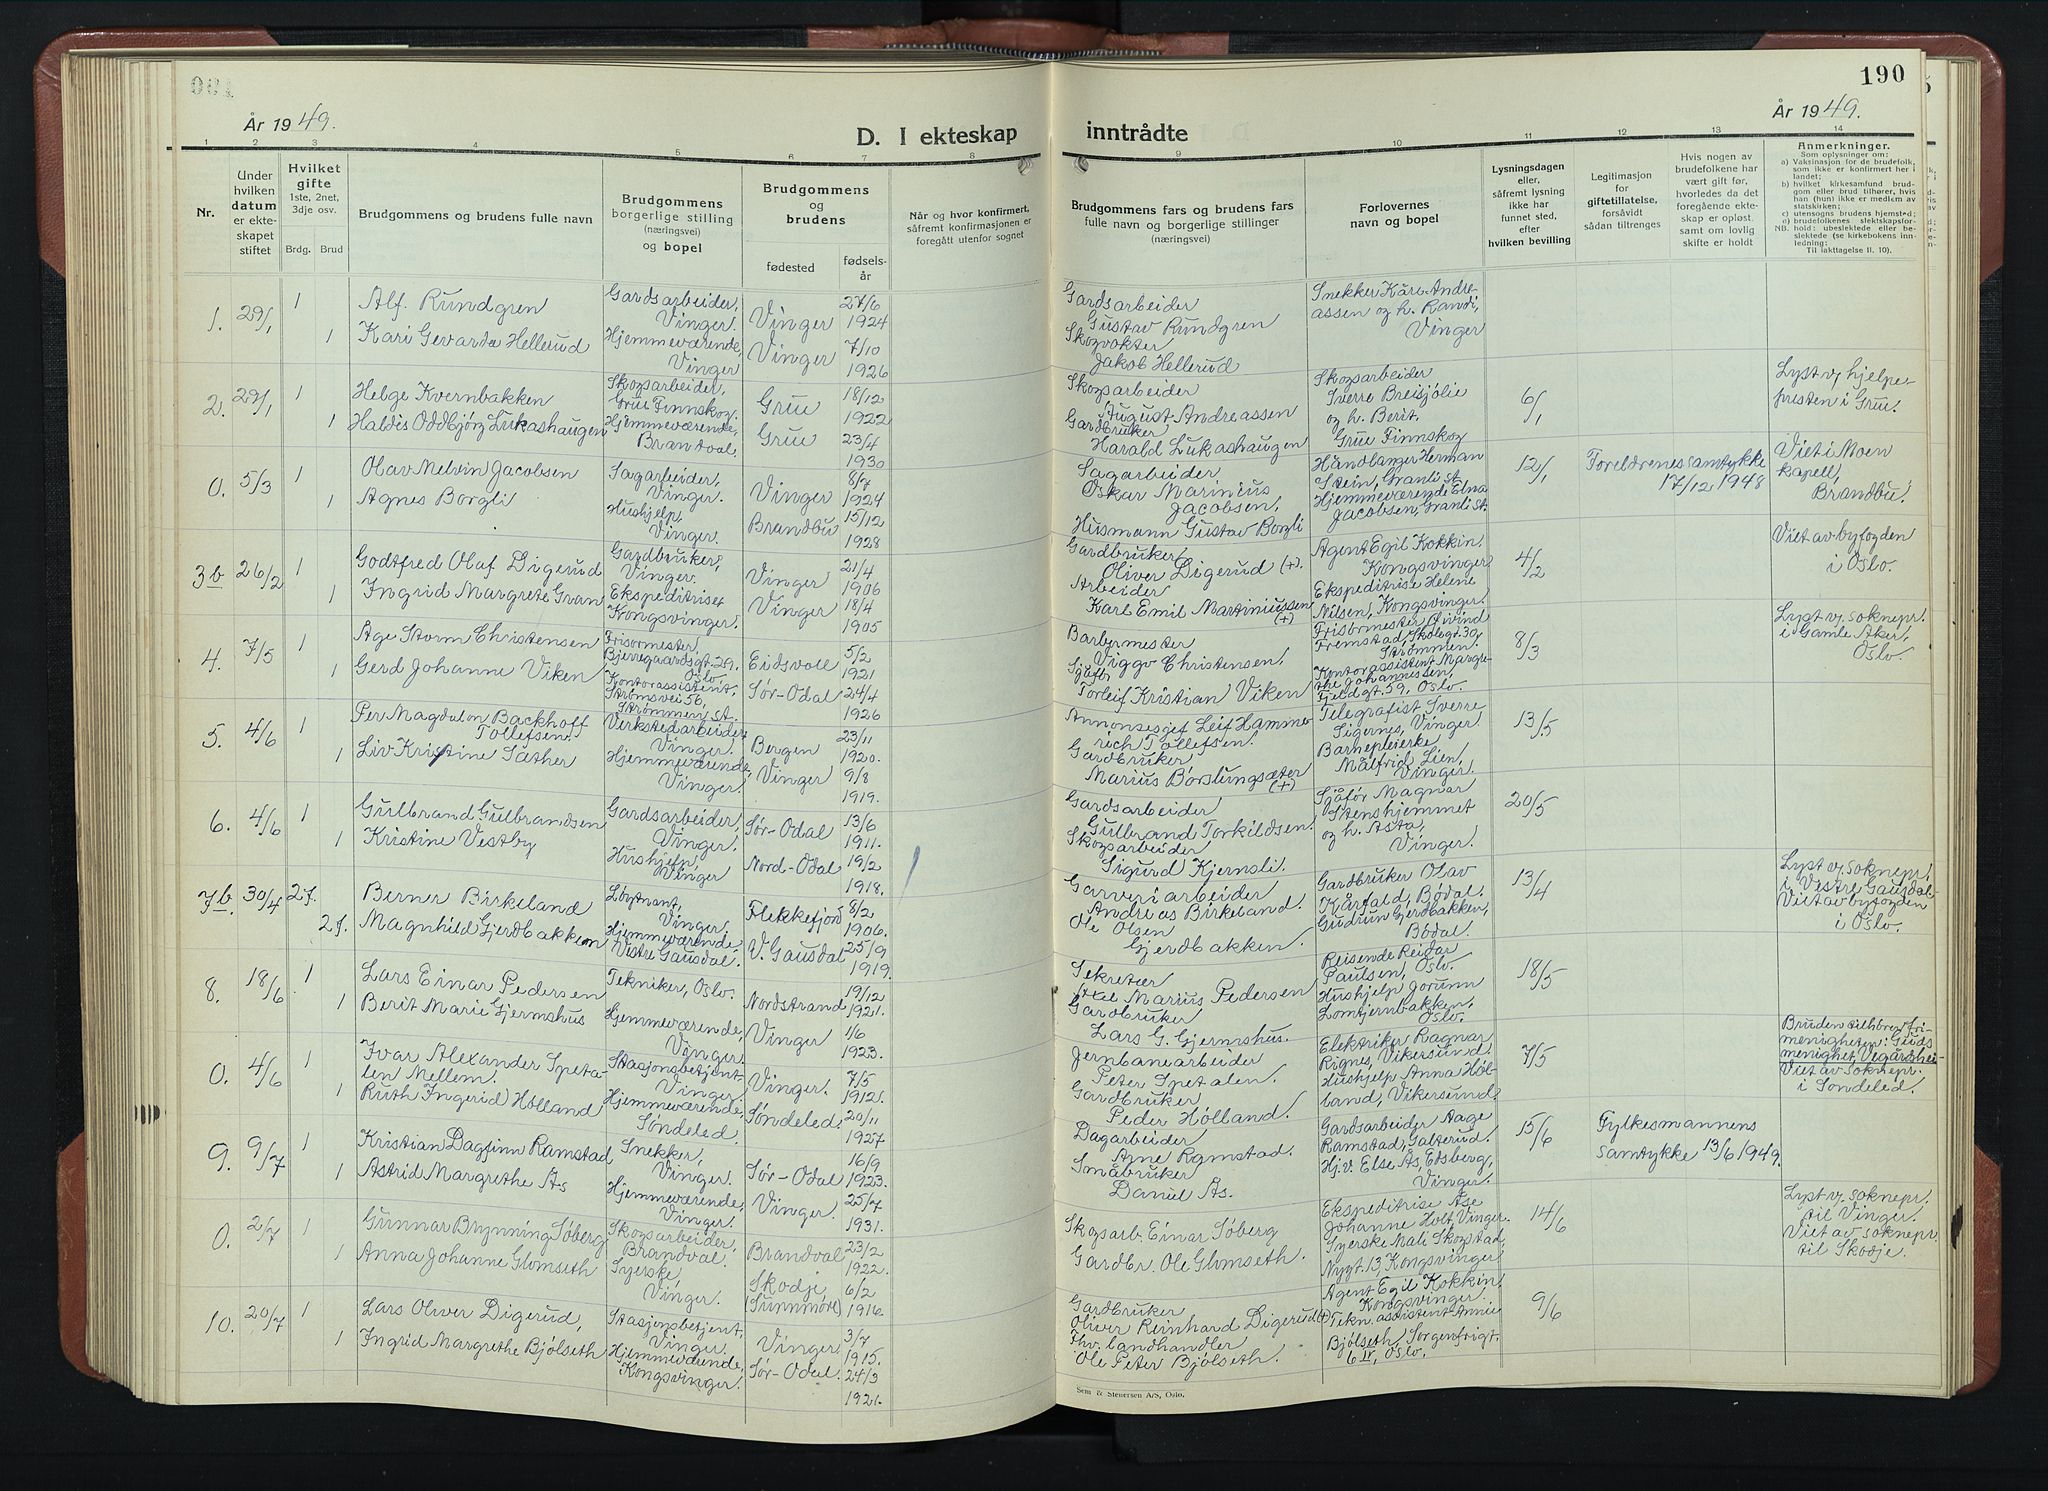 190
År 1949.
År 1949.
D. I ekteskap inntrådte
1 2 3 4 5 6 7 8 9 10 11 12 13 14
Nr.
Under hvilken datum er ekteskapet stiftet
Hvilket gifte 1ste, 2net, 3dje osv.
Brdg. Brud
Brudgommens og brudens fulle navn
Brudgommens borgerlige stilling (næringsvei) og bopel
Brudgommens og brudens
fødested
fødselsår
Når og hvor konfirmert, såfremt konfirmasjonen er foregått utenfor sognet
Brudgommens fars og brudens fars fulle navn og borgerlige stillinger (næringsvei)
Forlovernes navn og bopel
Lysningsdagen eller, såfremt lysning ikke har funnet sted, efter hvilken bevilling
Legitimasjon for giftetillatelse, forsåvidt sådan tiltrenges
Hvis nogen av brudefolkene har vært gift før, hvorledes da det foregående ekteskap er opløst. samt om lovlig skifte er holdt
Anmerkninger.
Som oplysninger om:
a) Vaksinasjon for de brudefolk, som ikke er konfirmert her i landet;
b) hvilket kirkesamfund brudgom eller brud tilhører, hvis han (hun) ikke er medlem av statskirken;
c) utensogns brudens hjemsted;
d) brudefolkenes slektskapsforhold: ubeslektede eller beslektede (se kirkebokens innledning:
NB. Til iakttagelse II. 10).
1. 29/1 1 Alf. Rundgren Gardsarbeider, Vinger. Vinger 27/6 1924
1 Kari Gevarda Hellerud Hjemmeværende, Vinger Vinger 7/10 1926
Gardsarbeider Gustav Rundgren
Skogvokter Jakob Hellerud
Snekker Kåre Andreassen og h. Randi, Vinger
2. 29/1 1 Helge Kvernbakken Skogsarbeider, Grue Finnskog. Grue 18/12 1922
1 Haldis Oddbjørg Lukashaugen Hjemmeværende, Brandval. Grue 23/4 1930
Skogsarbeider August Andreassen
Gardbruker Harald Lukashaugen
Skogsarbeider Sverre Breisjølie og h. Berit. Grue Finnskog
6/1
Lyst v/ hjelpepresten i Grue.
0. 5/3 1 Olav Melvin Jacobsen Sagarbeider, Vinger. Vinger 8/7 1924
1 Agnes Borgli Hushjelp, Vinger. Brandbu 15/12 1928
Sagarbeider Oskar Marinius Jacobsen,
Husmann Gustav Borgli
Håndlanger Herman Stein, Granli st.
Hjemmeværende Elna Jacobsen, Granli st.
12/1
Foreldrenes samtykke 17/12 1948
Viet i Moen kapell, Brandbu.
3b 26/2 1 Godtfred Olaf Digerud Gardbruker, Vinger. Vinger 21/4 1906
1 Ingrid Margrete Gran Ekspeditrise Kongsvinger. Vinger 18/4 1905
Gardbruker Oliver Digerud (+).
Arbeider Karl Emil Martiniussen (+)
Agent Egil Kokkin. Kongsvinger
Ekspeditrise Helene Nilsen, Kongsvinger.
4/2
Viet av byfogden i Oslo.
4. 7/5 1 Åge Storm Christensen Frisørmester, Bjerregaardsgt. 29. Oslo Eidsvoll 5/2 1921
1 Gerd Johanne Viken Kontorassistent, Strømsvei 56, Strømmen st. Sør-Odal 24/4 1926
Barbermester Viggo Christensen,
Sjåfør Torleif Kristian Viken
Frisørmester Øivind Fremstad, Skolegt. 30, Strømmen.
Kontorassistent Margrethe Johannessen, Fjeldgt. 59, Oslo.
8/3
Lyst v. soknepr. i Gamle Aker, Oslo.
5. 4/6 1 Per Magdalon Backhoff Tollefsen. Verkstedarbeider Vinger. Bergen 23/11 1920.
1 Liv Kristine Sæther Hjemmeværende, Vinger. Vinger 9/8 1919.
Annonsesjef Leif Hammerich Tollefsen.
Gardbruker Marius Børslungsæter (+)
Telegrafist Sverre Sigernes, Vinger
Barnepleierke Målfrid Lien, Vinger.
13/5
6. 4/6 1 Gulbrand Gulbrandsen Gardsarbeider, Vinger. Sør-Odal 13/6 1911.
1 Kristine Vestby Hushjelp, Vinger Nord-Odal 19/2 1918.
Gardsarbeider Gulbrand Torkildsen.
Skogsarbeider Sigurd Kjernsli.
Sjåfør Magnar Stenshjemmet og h. Asta, Vinger.
20/5
7b 30/4 2f. Berner Birkeland Løytnant, Vinger. Flekkefjord 8/2 1906.
2f. Magnhild Gjerdbakken Hjemmeværende Vestre Gausdal. V. Gausdal 25/9 1919.
Garveriarbeider Andreas Birkeland.
Ole Olsen Gjerdbakken.
Gardbruker Olav Kårfald, Bødal.
Gudrun Gjerdbakken, Bødal.
13/4
Lyst v. soknepr. i Vestre Gausdal. Viet av byfogden i Oslo.
8. 18/6 1 Lars Einar Pedersen Tekniker, Oslo. Nordstrand 19/12 1921.
1 Berit Marie Gjermshus Hjemmeværende, Vinger. Vinger 1/6 1923.
Sekretær Marius Pedersen
Gardbruker Lars G. Gjermshus.
Reisende Reidar Paulsen, Oslo.
Hushjelp Jorunn Lomtjernbakken, Oslo.
18/5
0. 4/6 1 Ivar Alexander Spetalen Mellem. Stasjonsbetjent Vinger. Vinger. 7/5 1912.
1 Ruth Ingerid Holland Hjemmeværende, Søndeled. Søndeled. 20/11 1927
Jernbanearbeider Peter Spetalen.
Gardbruker Peder Holland.
Elektriker Ragnar Rignes, Vikersund.
Hushjelp Anna Holland, Vikersund
7/5
Bruden tilhører Frimenigheten: Guds menighet, Vegårshei. Viet av soknepr. i Søndeled.
9. 9/7 1 Kristian Dagfinn Ramstad Snekker, Vinger. Sør-Odal 16/9 1923.
1 Astrid Margrethe Ås Hjemmeværende, Vinger. Vinger. 25/7 1931.
Dagarbeider Arne Ramstad.
Småbruker Daniel Ås.
Gardsarbeider Aage Ramstad, Galterud.
Hj.v. Else Ås, Edsberg, Vinger.
15/6
Fylkesmannens samtykke 13/6 1949.
0. 2/7 1 Gunnar Brynning Søberg Skogsarbeider, Brandval. Brandval 23/2 1922.
1 Anna Johanne Glomseth Syerske, Vinger. Skodje, (Sunnmøre) 6/2 1916.
Skogsarb. Einar Søberg
Gardbr. Ole Glomseth.
Ekspeditrise Åse Johanne Holt, Vinger.
Syerske Mali Skogstad, Nygt. 13, Kongsvinger
14/6
Lyst v. soknepr. til Vinger. Viet av soknepr. til Skodje.
10. 20/7 1 Lars Oliver Digerud, Stasjonsbetjent, Vinger. Vinger 3/7 1915.
1 Ingrid Margrethe Bjølseth Hjemmeværende, Kongsvinger. Sør-Odal. 24/3 1921.
Gardbruker Oliver Reinhard Digerud (+)
Fhv. landhandler Ole Peter Bjølseth.
Agent Egil Kokkin. Kongsvinger.
Tekn. assistent Annie Bjølseth, Sorgenfrigt. 6 IV, Oslo.
9/6
Sem & Stenersen A/S, Oslo.